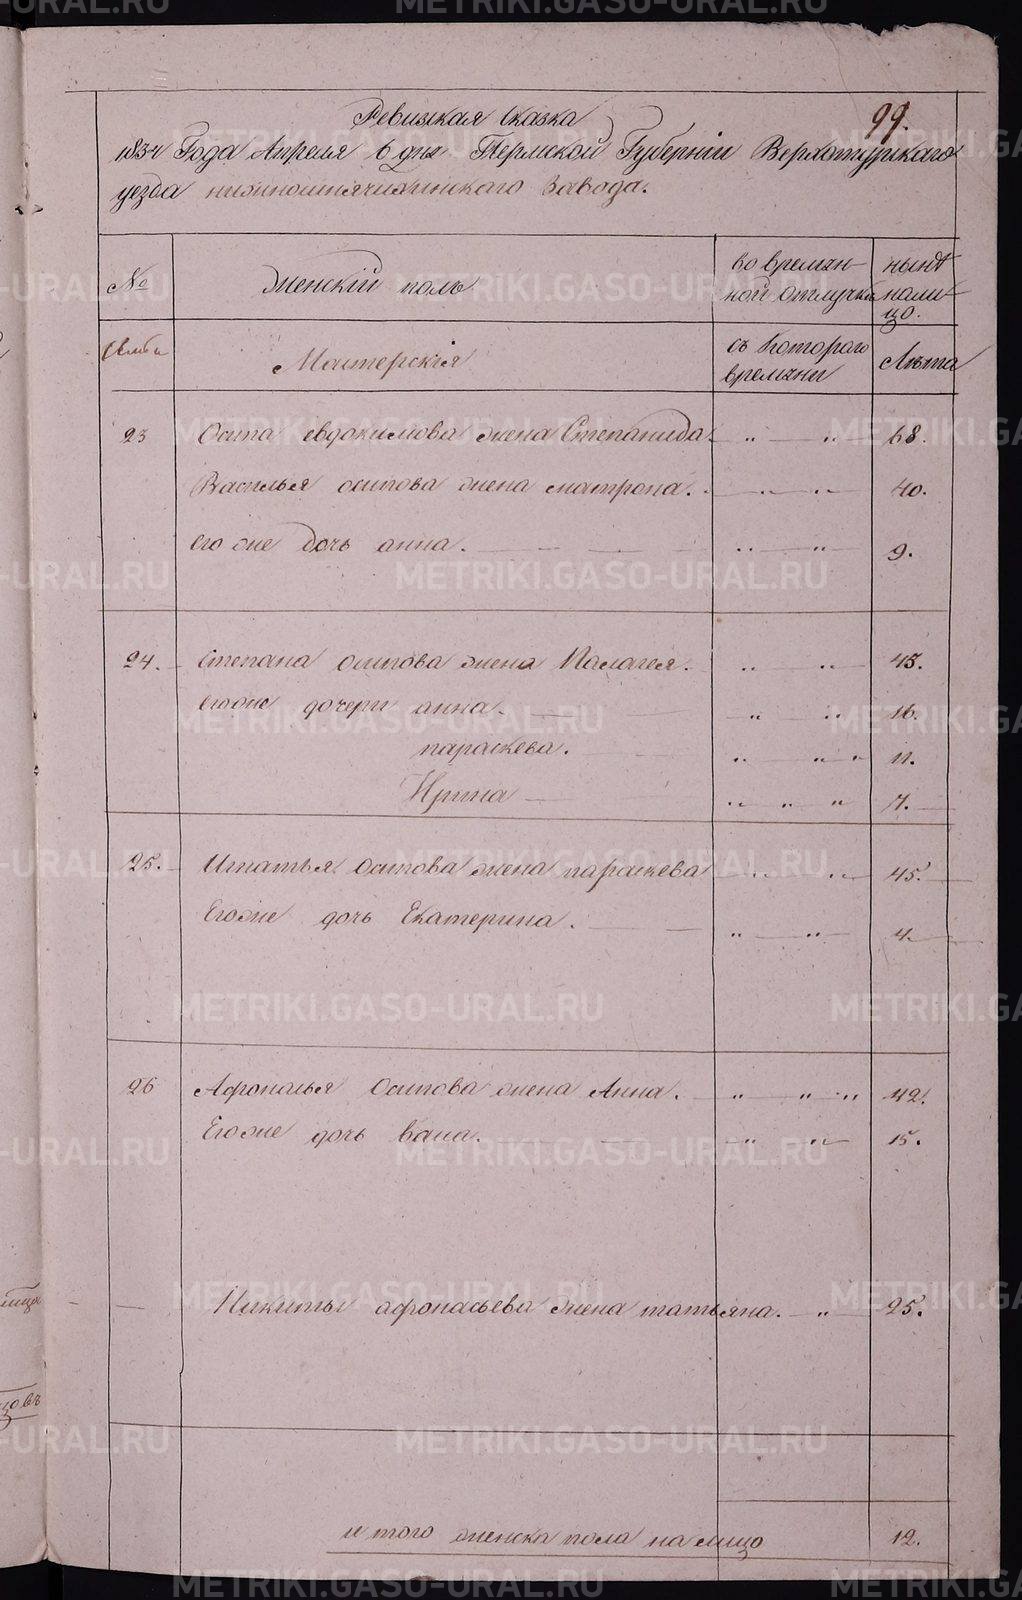 99.
Ревизкая Сказка
1834 Года Апреля 6 дня Пермской Губернiи Верхотурскаго
уезда нижнošinячихинскаго Завода.
№ Женскiй поль во времян- ныне
ной отлучке нали-
цо.
семьи Мастерскiя съ Котораго Лета
времяни
23 Осипа евдокимова жена Степанида. " — " — 68.
Василья осипова жена матрона. " — " — 40.
его же дочь анна. " — " — 9.
24. Степана осипова жена Палагея. " — " — 43.
его же дочери анна. " — " — 16.
параскева. " — " " 11.
Ирина " " " 7.
25. Игнатья Осипова жена параскева " — " — 45.
Его же дочь Екатерина. " — " — 4.
26 Афонасья Осипова жена Анна. " " " 42.
Его же дочь 15.
Никиты афонасьева жена татьяна. — " — 25.
итого женска пола на лицо 12.
METRIKI.GASO-URAL.RU